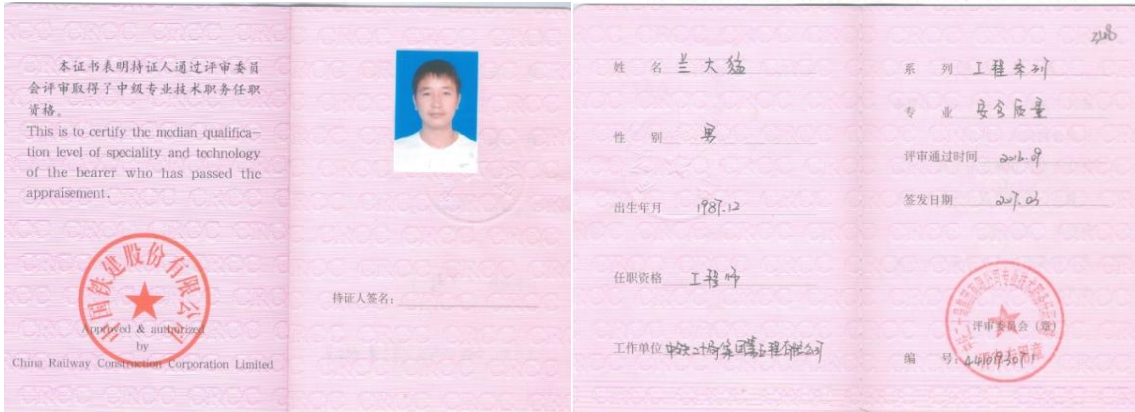 本证书表明持证人通过评审委员
会评审取得了中级专业技术职务任职
资格。
This is to certify the median qualifica-
tion level of speciality and technology
of the bearer who has passed the
appraisement.
中国铁建股份有限公司
Approved & authorized
by
China Railway Construction Corporation Limited
持证人签名:
姓 名 兰大猛
性 别 男
出生年月 1987.12
任职资格 工程师
工作单位
系 列 工程系列
专 业 安全质量
评审通过时间 2016.09
签发日期 2017.03
评审委员会(章)
编 号: